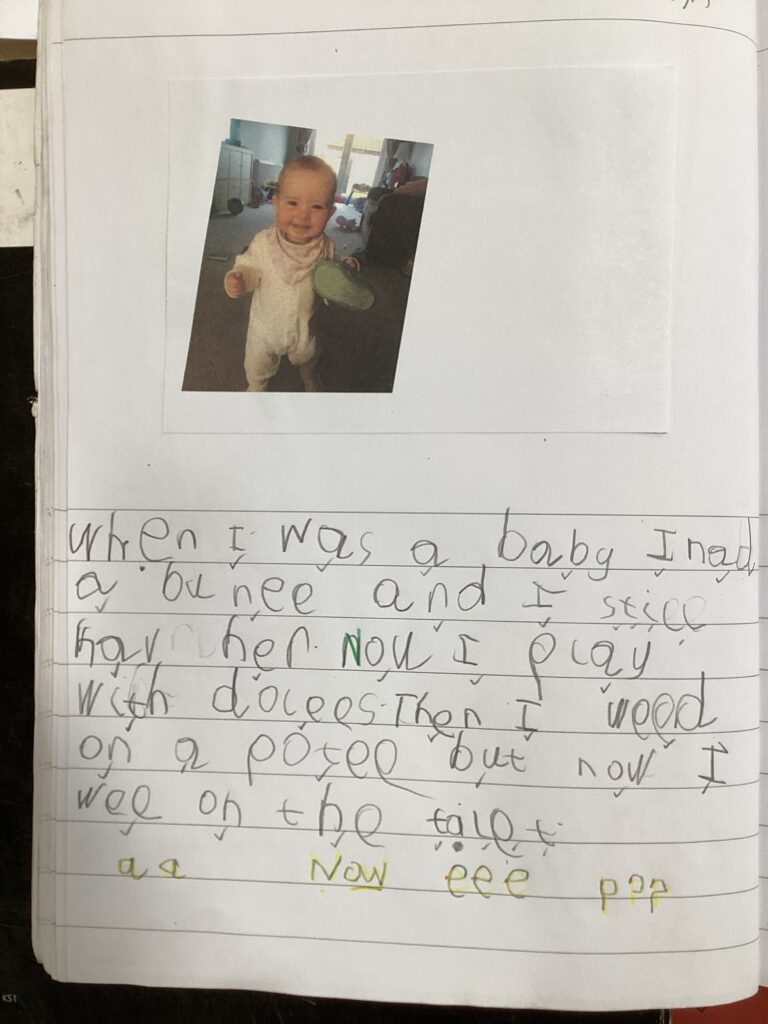 when I was a baby I had
a bu nee and I still
hav her. Now I play
with dolees. Then I weed
on a potee but now I
wee on the talet.
a a Now eee ppp
KS1